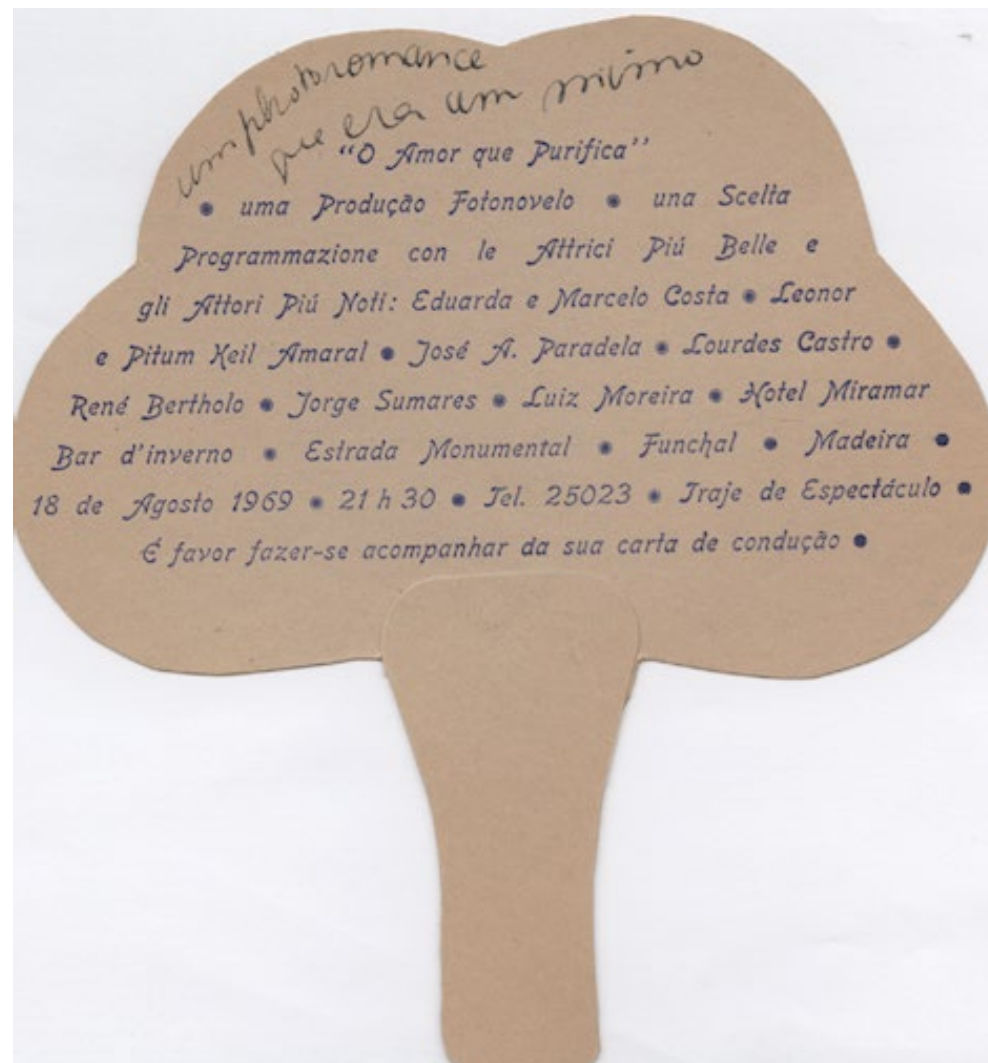 um photoromance
que era um mimo
“O Amor que Purifica”
• uma Produção Fotonovelo • una Scelta
Programmazione con le Attrici Piú Belle e
gli Attori Piú Noti: Eduarda e Marcelo Costa • Leonor
e Pitum Keil Amaral • José A. Paradela • Lourdes Castro •
René Bertholo • Jorge Sumares • Luiz Moreira • Hotel Miramar
Bar d'inverno • Estrada Monumental • Funchal • Madeira •
18 de Agosto 1969 • 21 h 30 • Tel. 25023 • Traje de Espectáculo •
É favor fazer-se acompanhar da sua carta de condução •